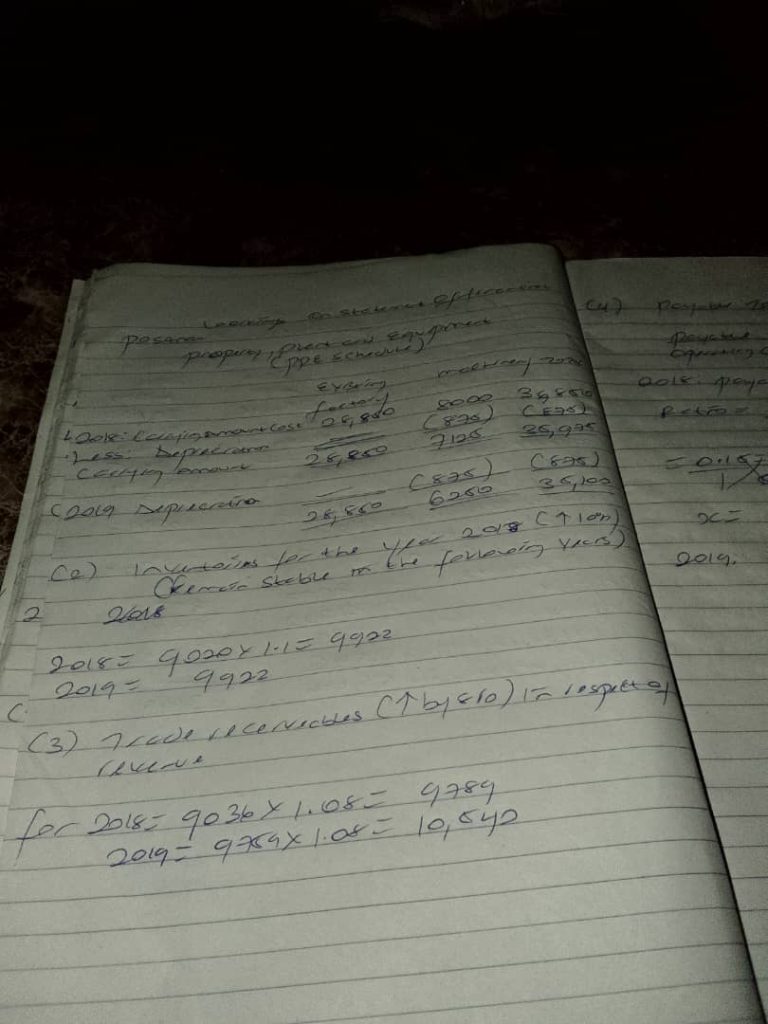 Looking on Statement of financial
position
property, plant and Equipment
(PPE Schedule)
Existing machinery Total
factory
2018: Carrying amount Cost 28,850 8000 36,850
Less: Depreciation — (875) (875)
Carrying amount 28,850 7125 35,975
2019 Depreciation — (875) (875)
28,850 6250 35,100
(2) Inventories for the year 2018 (↑10%)
(Remain stable in the following years)
2018
2018 = 9020 x 1.1 = 9922
2019 = 9922
(3) Trade receivables (↑ by 8%) in respect of
revenue
for 2018 = 9036 x 1.08 = 9759
2019 = 9759 x 1.08 = 10,542
(4)
2018:
Ratio =
= 0.157
1
x =
2019.